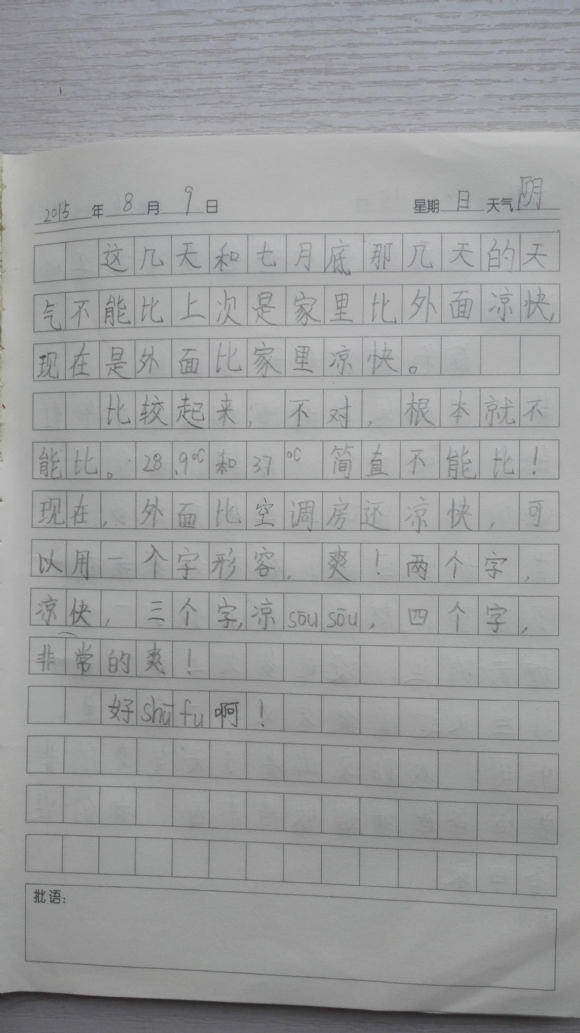 2015 年 8 月 9 日 星期 日 天气 阴
这几天和七月底那几天的天
气不能比上次是家里比外面凉快,
现在是外面比家里凉快。
比较起来,不对,根本就不
能比。28.9℃和37℃ 简直不能比!
现在,外面比空调房还凉快,可
以用一个字形容,爽!两个字,
凉快,三个字,凉sōusōu,四个字,
非常的爽!
好shūfu啊!
批语: